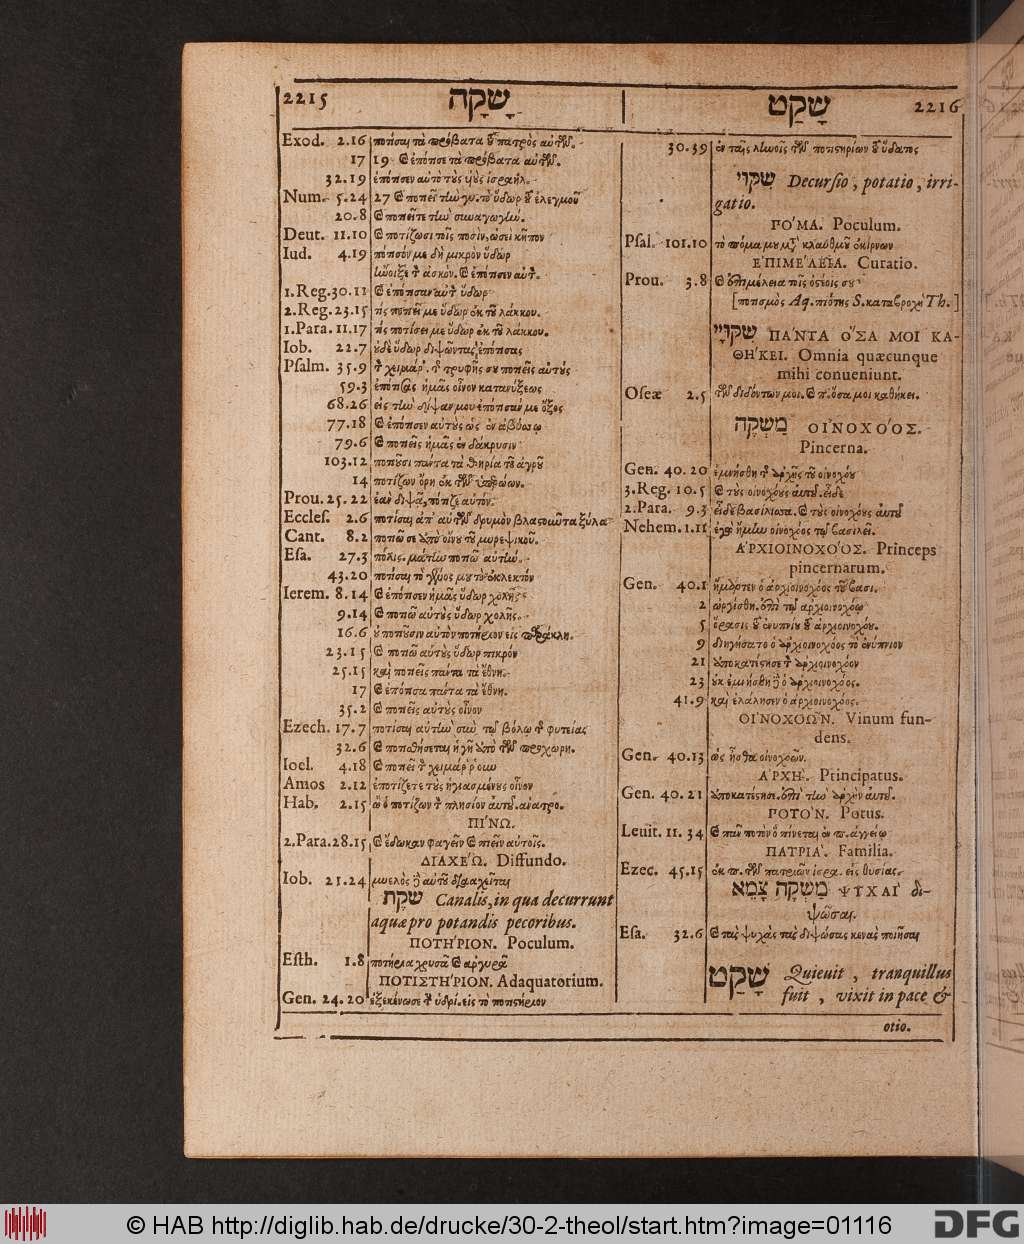 2215 שָׁקָה
Exod. 2.16 ποτίσαι τὰ πρόβατα τοῦ πατρὸς αὐτῶν.
17 19 καὶ ἐπότισε τὰ πρόβατα αὐτῶν.
32.19 ἐπότισεν αὐτὸ τοὺς υἱοὺς ἰσραήλ.
Num. 5.24 27 καὶ ποτιεῖ τὴν γυ. τὸ ὕδωρ τοῦ ἐλεγμοῦ
20.8 καὶ ποτιεῖτε τὴν συναγωγήν.
Deut. 11.10 καὶ ποτίζωσι τοῖς ποσὶν, ὡσεὶ κῆπον
Iud. 4.19 πότισόν με δὴ μικρὸν ὕδωρ
ἤνοιξε τὸν ἀσκόν. καὶ ἐπότισεν αὐτ.
1.Reg. 30.11 καὶ ἐπότισαν αὐτὸν ὕδωρ
2.Reg. 23.15 τίς ποτιεῖ με ὕδωρ ἐκ τοῦ λάκκου.
1.Para. 11.17 τίς ποτίσει με ὕδωρ ἐκ τοῦ λάκκου.
Iob. 22.7 οὐδὲ ὕδωρ διψῶντας ἐπότισας
Psalm. 35.9 τὸν χειμάρ. τῆς τρυφῆς σου ποτιεῖς αὐτούς
59.3 ἐπότισας ἡμᾶς οἶνον κατανύξεως
68.26 εἰς τὴν δίψαν μου ἐπότισάν με ὄξος
77.18 καὶ ἐπότισεν αὐτοὺς ὡς ἐν ἀβύσσῳ
79.6 καὶ ποτιεῖς ἡμᾶς ἐν δάκρυσιν
103.12 ποτιοῦσι πάντα τὰ θηρία τοῦ ἀγροῦ
14 ποτίζων ὄρη ἐκ τῶν ὑπερώων.
Prou. 25.22 ἐὰν διψᾷ, πότιζε αὐτόν.
Eccles. 2.6 ποτίσαι ἀπ' αὐτῶν δρυμὸν βλαστῶντα ξύλα
Cant. 8.2 ποτιῶ σε ἀπὸ οἴνου τοῦ μυρεψικοῦ.
Esa. 27.3 πόλις. μάτην ποτιῶ αὐτήν.
43.20 ποτίσαι τὸ γένος μου τὸ ἐκλεκτόν
Ierem. 8.14 καὶ ἐπότισεν ἡμᾶς ὕδωρ χολῆς
9.14 καὶ ποτιῶ αὐτοὺς ὕδωρ χολῆς.
16.6 οὐ ποτιοῦσιν αὐτὸν ποτήριον εἰς παράκλη.
23.15 καὶ ποτιῶ αὐτοὺς ὕδωρ πικρόν
25.15 καὶ ποτιεῖς πάντα τὰ ἔθνη.
17 καὶ ἐπότισα πάντα τὰ ἔθνη.
35.2 καὶ ποτιεῖς αὐτοὺς οἶνον
Ezech. 17.7 ποτίσαι αὐτὴν σὺν τῷ βόλῳ τῆς φυτείας
32.6 καὶ ποτισθήσεται ἡ γῆ ἀπὸ τῶν προχωρη.
Ioel. 4.18 καὶ ποτιεῖ τὸν χειμάῤῥουν
Amos 2.12 ἐποτίζετε τοὺς ἡγιασμένους οἶνον
Hab. 2.15 ὦ ὁ ποτίζων τὸν πλησίον αὐτοῦ. ἀνατρο.
ΠΙΝΩ.
2.Para. 28.15 καὶ ἔδωκαν φαγεῖν καὶ πιεῖν αὐτοῖς.
ΔΙΑΧΕΩ. Diffundo.
Iob. 21.24 μυελὸς δὲ αὐτοῦ διαχεῖται
שקת Canalis, in qua decurrunt
aquæ pro potandis pecoribus.
ΠΟΤΗΡΙΟΝ. Poculum.
Esth. 1.8 ποτήρια χρυσᾶ καὶ ἀργυρᾶ
ΠΟΤΙΣΤΗΡΙΟΝ. Adaquatorium.
Gen. 24.20 ἐξεκένωσε τὴν ὑδρί. εἰς τὸ ποτιστήριον
שָׁקַט 2216
30.39 ἐν ταῖς ληνοῖς τῶν ποτιστηρίων τοῦ ὕδατος
שִׁקּוּי Decursio, potatio, irri-
gatio.
ΠΟΜΑ. Poculum.
Psal. 101.10 τὸ πόμα μου μετὰ κλαυθμοῦ ἐκίρνων
ΕΠΙΜΕΛΕΙΑ. Curatio.
Prou. 3.8 καὶ ἐπιμέλεια τοῖς ὀστέοις σου
[ποτισμὸς Aq. πιότης S. καταβροχὴ Th.]
שִׁקּוּיָי ΠΑΝΤΑ ΟΣΑ ΜΟΙ ΚΑ-
ΘΗΚΕΙ. Omnia quæcunque
mihi conueniunt.
Oseæ 2.5 τῶν διδόντων μοι. καὶ π. ὅσα μοι καθήκει.
מַשְׁקֶה ΟΙΝΟΧΟΟΣ.
Pincerna.
Gen. 40.20 ἐμνήσθη τῆς ἀρχῆς τοῦ οἰνοχόου
3.Reg. 10.5 καὶ τοὺς οἰνοχόους αὐτοῦ. εἶδε
2.Para. 9.3 εἶδε βασίλισσα. καὶ τοὺς οἰνοχόους αὐτοῦ
Nehem. 1.11 ἐγὼ ἤμην οἰνοχόος τῷ βασιλεῖ.
ΑΡΧΙΟΙΝΟΧΟΟΣ. Princeps
pincernarum.
Gen. 40.1 ἥμαρτεν ὁ ἀρχιοινοχόος τοῦ βασι.
2 ὠργίσθη. ἐπὶ τῷ ἀρχιοινοχόῳ
5 ὅρασις τοῦ ἐνυπνίου τοῦ ἀρχιοινοχόου.
9 διηγήσατο ὁ ἀρχιοινοχόος τὸ ἐνύπνιον
21 ἀποκατέστησε τὸν ἀρχιοινοχόον
23 οὐκ ἐμνήσθη δὲ ὁ ἀρχιοινοχόος.
41.9 καὶ ἐλάλησεν ὁ ἀρχιοινοχόος.
ΟΙΝΟΧΟΩΝ. Vinum fun-
dens.
Gen. 40.13 ὡς ἦσθα οἰνοχοῶν.
ΑΡΧΗ. Principatus.
Gen. 40.21 ἀποκατέστησε. ἐπὶ τὴν ἀρχὴν αὐτοῦ.
ΠΟΤΟΝ. Potus.
Leuit. 11.34 καὶ πᾶν ποτὸν ὃ πίνεται ἐν π. ἀγγείῳ
ΠΑΤΡΙΑ. Familia.
Ezec. 45.15 ἐκ π. τῶν πατριῶν ἰσρα. εἰς θυσίας.
מַשְׁקֶה צָמֵא ΨΥΧΑΙ δι-
ψῶσαι.
Esa. 32.6 καὶ τὰς ψυχὰς τὰς διψώσας κενὰς ποιῆσαι
שָׁקַט Quieuit, tranquillus
fuit, vixit in pace &
otio.
© HAB http://diglib.hab.de/drucke/30-2-theol/start.htm?image=01116 DFG